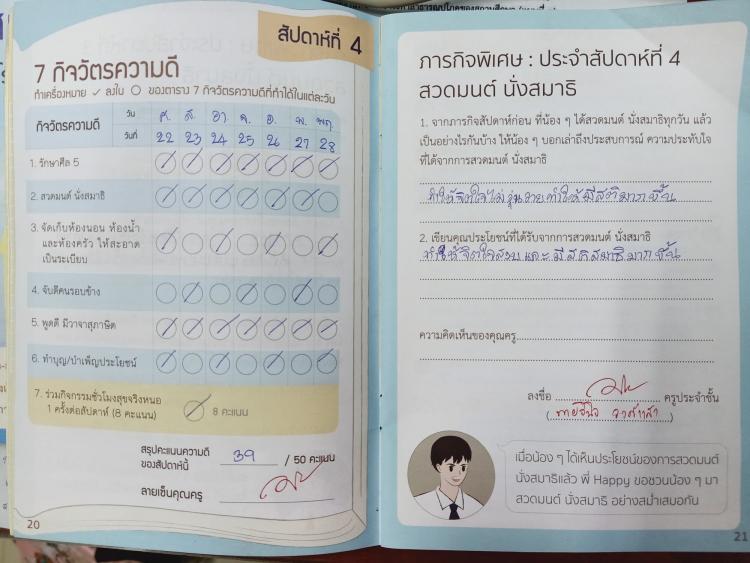 สัปดาห์ที่ 4
7 กิจวัตรความดี
ทำเครื่องหมาย ✓ ลงใน ○ ของตาราง 7 กิจวัตรความดีที่ทำได้ในแต่ละวัน
กิจวัตรความดี
วัน ศ. ส. อา. จ. อ. พ. พฤ.
วันที่ 22 23 24 25 26 27 28
1. รักษาศีล 5
2. สวดมนต์ นั่งสมาธิ
3. จัดเก็บห้องนอน ห้องน้ำ
และห้องครัว ให้สะอาด
เป็นระเบียบ
4. จับดีคนรอบข้าง
5. พูดดี มีวาจาสุภาษิต
6. ทำบุญ/บำเพ็ญประโยชน์
7. ร่วมกิจกรรมชั่วโมงสุขจริงหนอ
1 ครั้งต่อสัปดาห์ (8 คะแนน)
8 คะแนน
สรุปคะแนนความดี
ของสัปดาห์นี้ 39 / 50 คะแนน
ลายเซ็นคุณครู
20
ภารกิจพิเศษ : ประจำสัปดาห์ที่ 4
สวดมนต์ นั่งสมาธิ
1. จากภารกิจสัปดาห์ก่อน ที่น้อง ๆ ได้สวดมนต์ นั่งสมาธิทุกวัน แล้ว
เป็นอย่างไรกันบ้าง ให้น้อง ๆ บอกเล่าถึงประสบการณ์ ความประทับใจ
ที่ได้จากการสวดมนต์ นั่งสมาธิ
ทำให้จิตใจไม่วุ่นวายทำให้มีสติมากขึ้น
2. เขียนคุณประโยชน์ที่ได้รับจากการสวดมนต์ นั่งสมาธิ
ทำให้จิตใจสงบและมีสติสมาธิมากขึ้น
ความคิดเห็นของคุณครู
ลงชื่อ ครูประจำชั้น
เมื่อน้อง ๆ ได้เห็นประโยชน์ของการสวดมนต์
นั่งสมาธิแล้ว พี่ Happy ขอชวนน้อง ๆ มา
สวดมนต์ นั่งสมาธิ อย่างสม่ำเสมอกัน
21